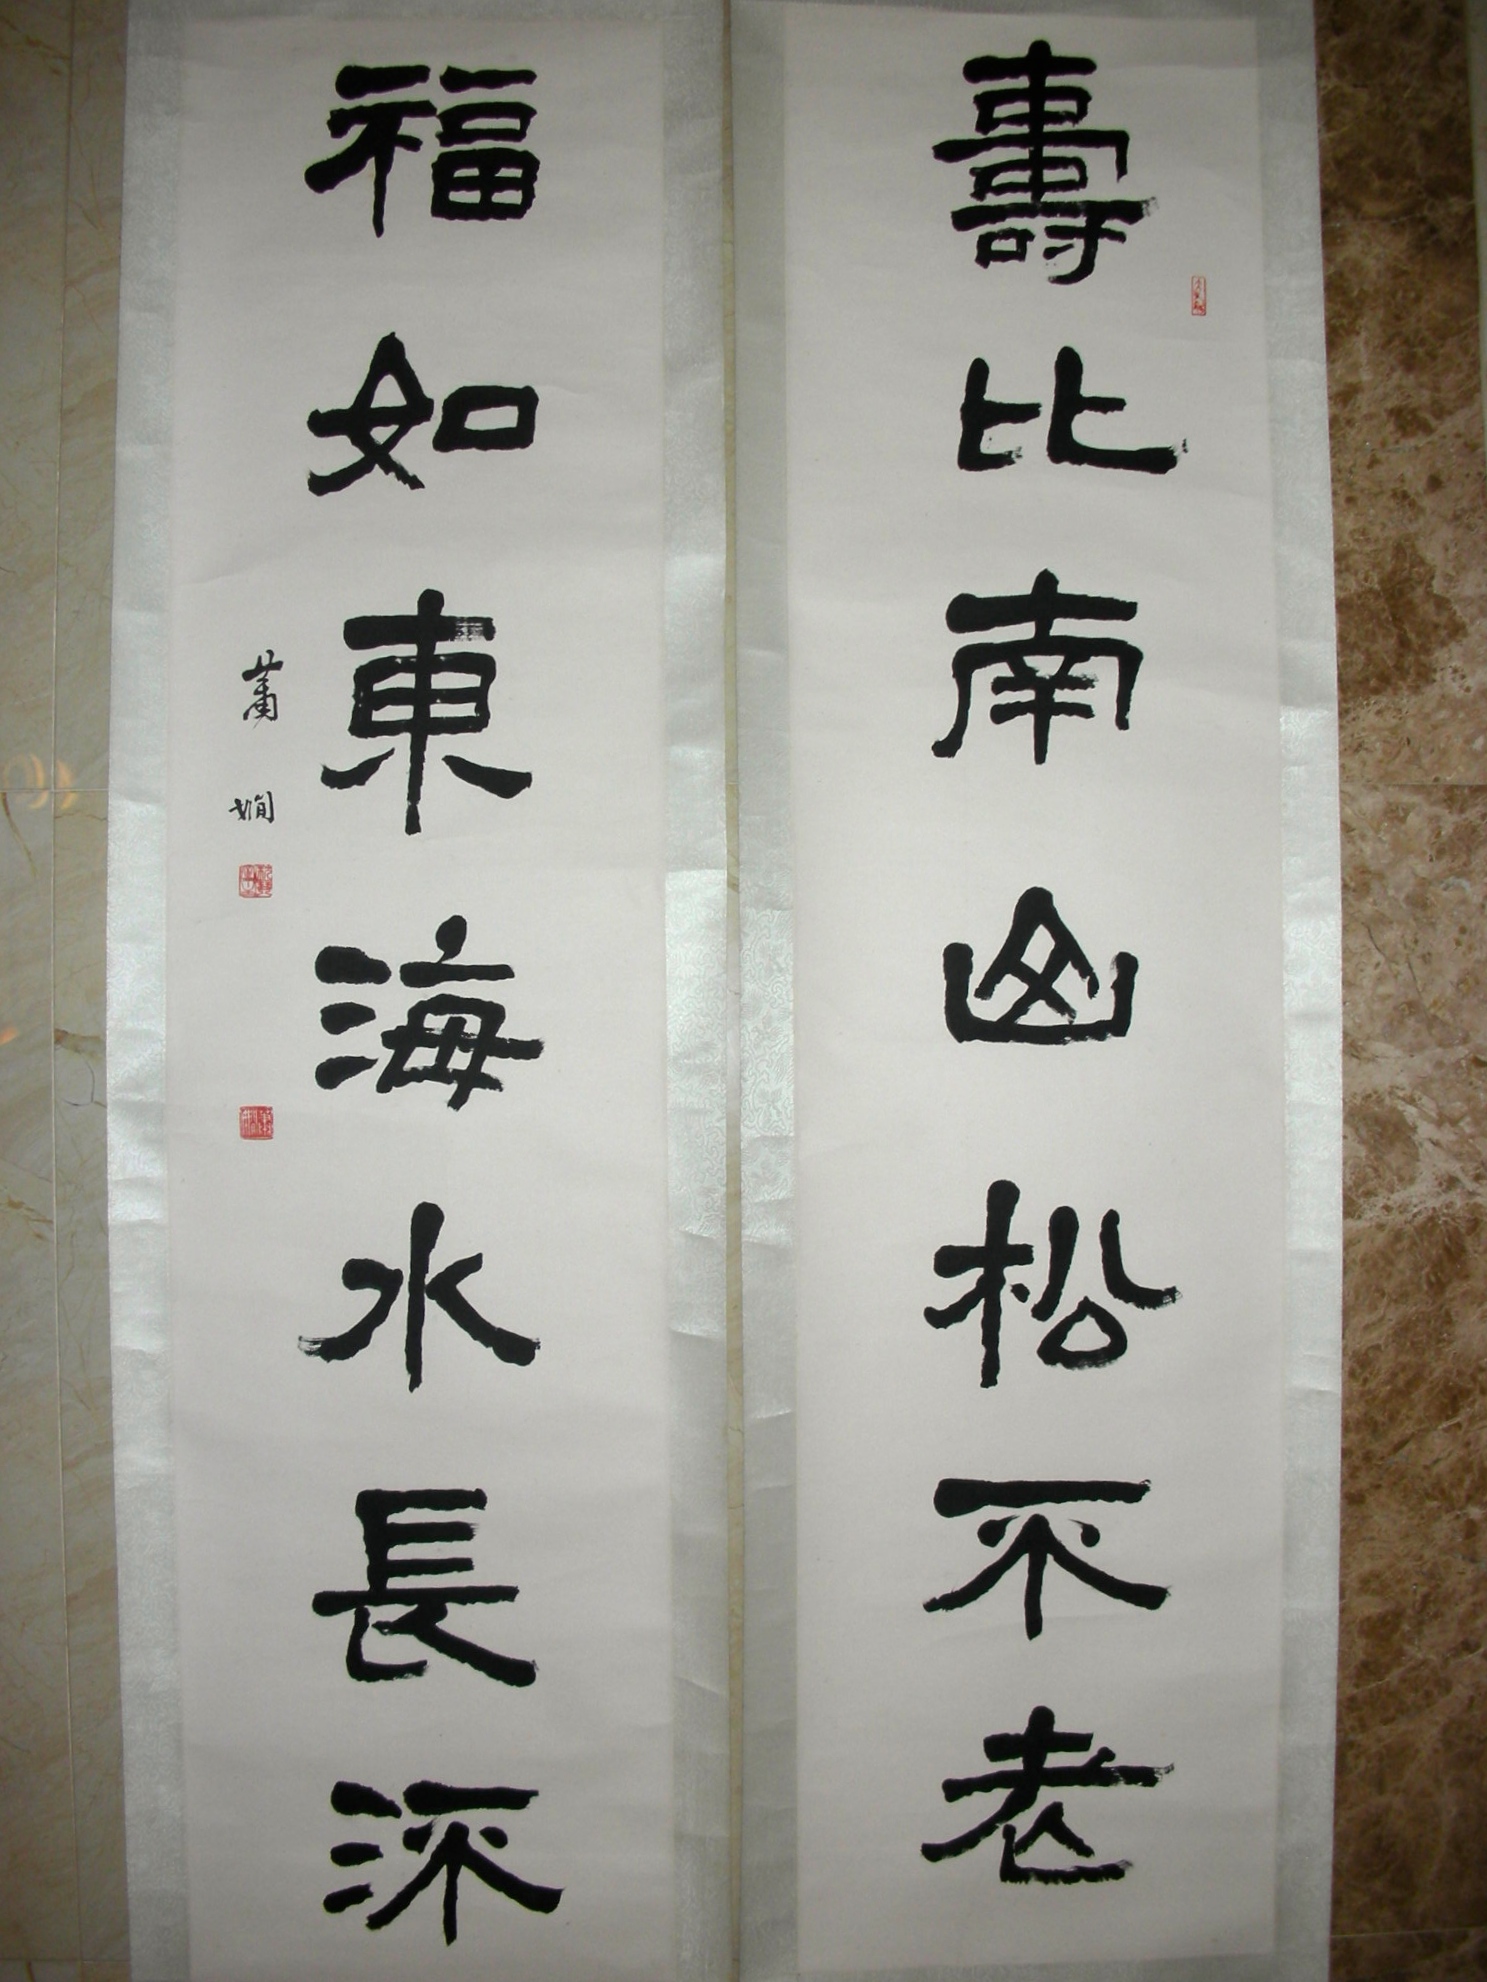 壽比南山松不老
福如東海水長流
蕭嫻